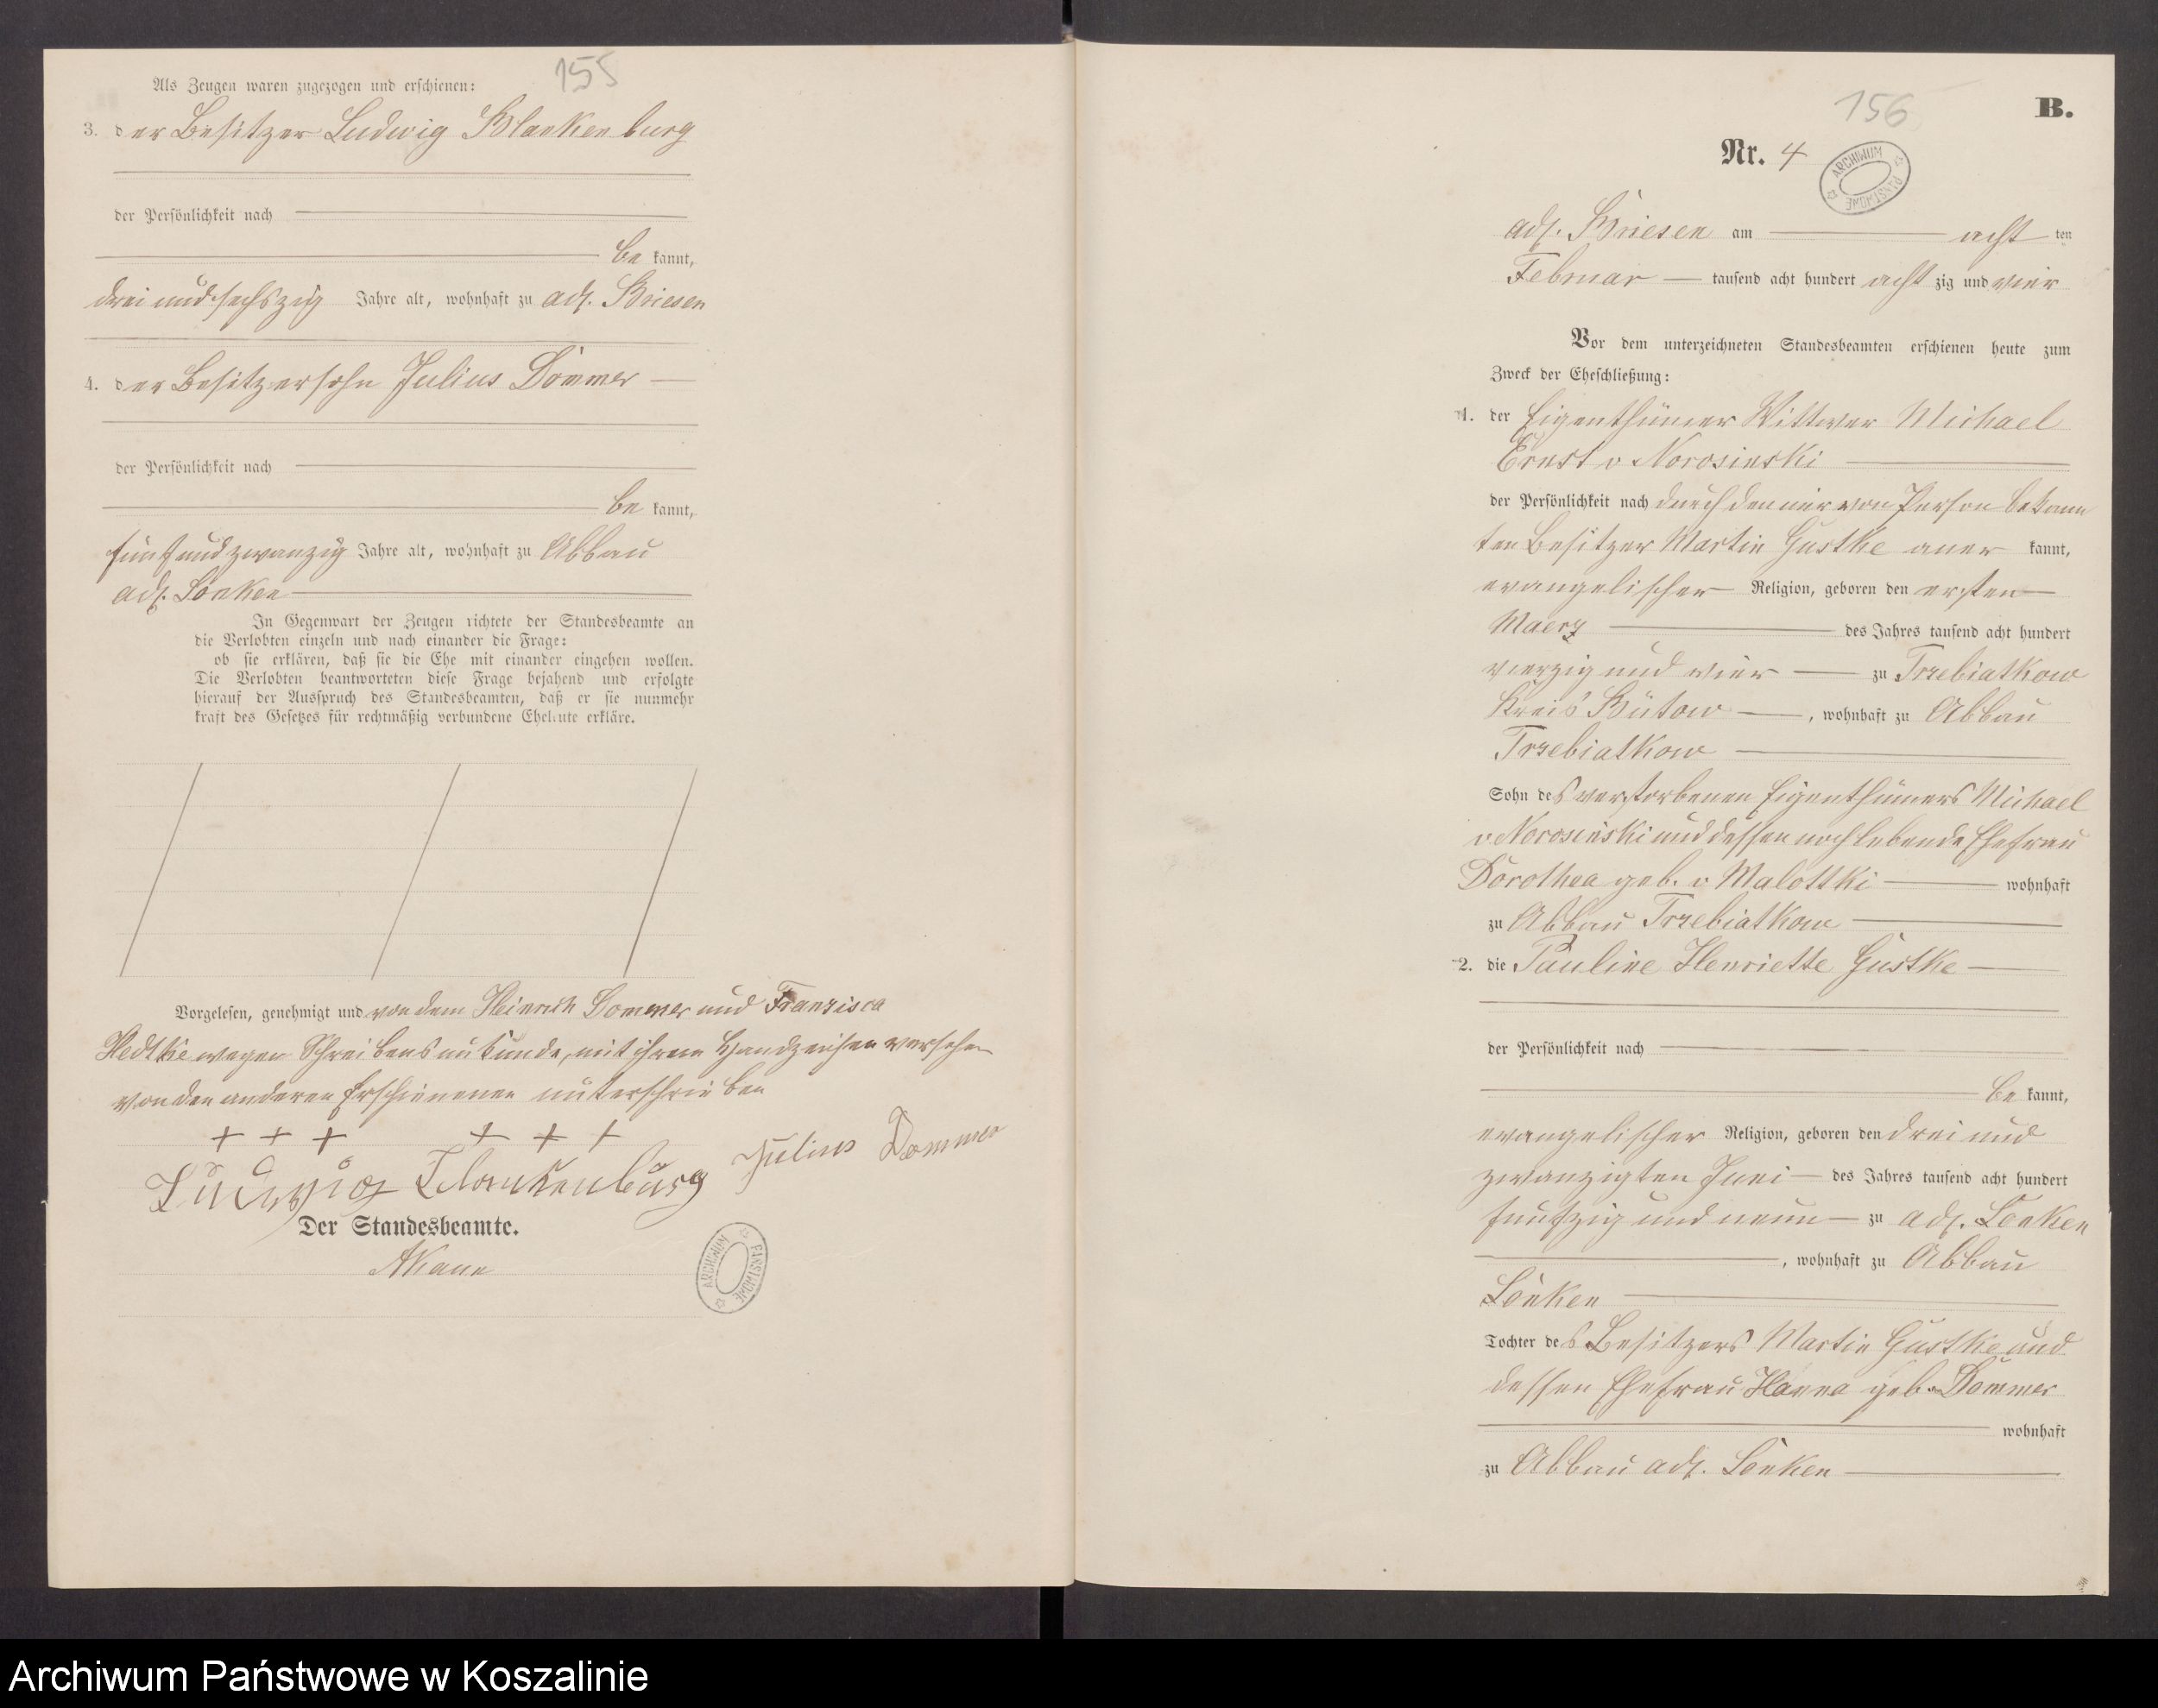 155
Als Zeugen waren zugezogen und erschienen:
3. der Besitzer Ludwig Blankenburg
der Persönlichkeit nach
be kannt,
drei und sechszig Jahre alt, wohnhaft zu adl. Briesen
4. der Besitzersohn Julius Dommer
der Persönlichkeit nach
be kannt,
fünf und zwanzig Jahre alt, wohnhaft zu Abbau
adl. Lonken
In Gegenwart der Zeugen richtete der Standesbeamte an
die Verlobten einzeln und nach einander die Frage:
ob sie erklären, daß sie die Ehe mit einander eingehen wollen.
Die Verlobten beantworteten diese Frage bejahend und erfolgte
hierauf der Ausspruch des Standesbeamten, daß er sie nunmehr
kraft des Gesetzes für rechtmäßig verbundene Eheleute erkläre.
Vorgelesen, genehmigt und von dem Heinrich Dommer und Franzisca
Hedtke wegen Schreibensunkunde, mit ihrem Handzeichen versehen
von den anderen Erschienenen unterschrieben
+ + + + + +
Ludwig Blankenburg Julius Dommer
Der Standesbeamte.
AKann
ARCHIWUM PAŃSTWOWE
156
B.
Nr. 4
ARCHIWUM PAŃSTWOWE
adl. Briesen am acht ten
Februar tausend acht hundert acht zig und vier
Vor dem unterzeichneten Standesbeamten erschienen heute zum
Zweck der Eheschließung:
1. der Eigenthümer Wittwer Michael
Ernst v Norosinski
der Persönlichkeit nach durch den mir von Person bekann
ten Besitzer Martin Gustke aner kannt,
evangelischer Religion, geboren den ersten
Maerz des Jahres tausend acht hundert
vierzig und vier zu Trzebiatkow
Kreis Bütow, wohnhaft zu Abbau
Trzebiatkow
Sohn des verstorbenen Eigenthümers Michael
v Norosinski und dessen noch lebende Ehefrau
Dorothea geb. v Malottki wohnhaft
zu Abbau Trzebiatkow
2. die Pauline Henriette Gustke
der Persönlichkeit nach
be kannt,
evangelischer Religion, geboren den drei und
zwanzigten Juni des Jahres tausend acht hundert
funfzig und neun zu adl. Lonken
, wohnhaft zu Abbau
Lonken
Tochter des Besitzers Martin Gustke und
dessen Ehefrau Hanna geb. Dommer
wohnhaft
zu Abbau adl. Lonken
Archiwum Państwowe w Koszalinie